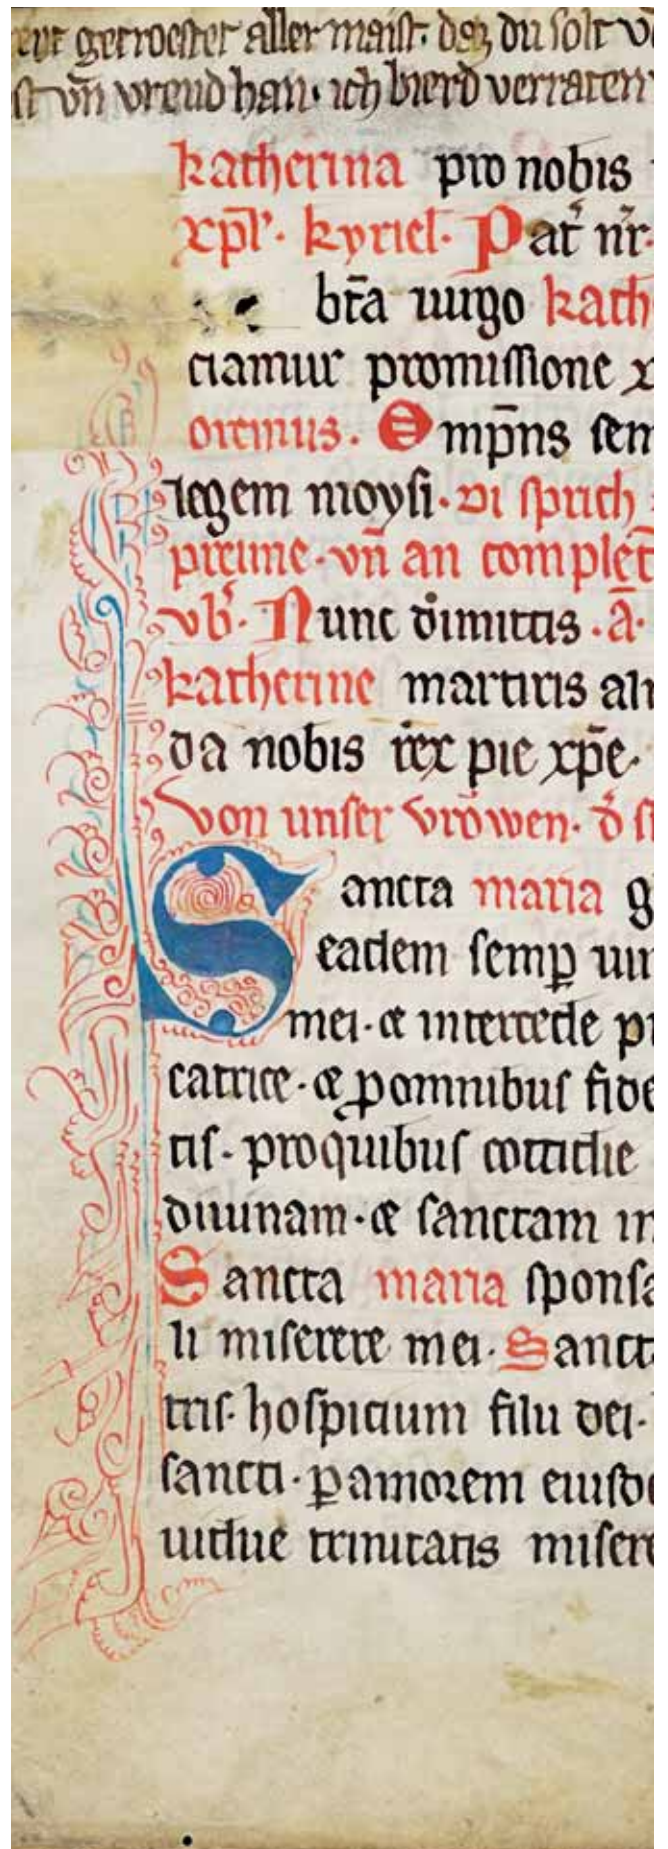 getroester aller maist. daz du solt
vn̄ vreud han. ich wierd verraten
katherina pro nobis
xp̄l'. kyriel. Pat̉ nr̉.
bt̄a uirgo kath
ciamur promissione x
oremus. Omp̄ns sem
legem moysi. Di sprich
preime. vn̄ an complet̄
vb̉. Nunc dimittis. ā.
katherine martiris alm
da nobis rex pie xp̄e.
von unser vrowen. d̉ s
Sancta maria g
eadem semꝑ uir
mei. et intercede p
catrice. et ꝑ omnibus fide
tis. pro quibus cottidie
diuinam. et sanctam in
Sancta maria sponsa
li miserere mei. Sanct
tris. hospicium filii dei.
sancti. ꝑ amorem eiusde
uidue trinitatis misere